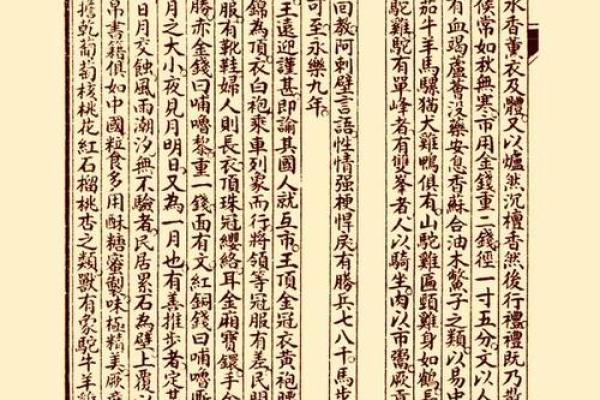 水香薰衣及體又以爐爇沉檀香然後行禮禮旣乃散
候常如秋無寒市用金錢重二錢徑一寸五分文以人
有血竭蘆薈沒藥安息香蘇合油木鱉子之類以易中
茄牛羊馬騾猫犬雞鴨俱有山駝雞匾頸雞身如鶴長
駝雞駝有單峰者有雙峯者人以騎坐肉以市鬻厥貢
回教阿剌壁言語性情强梗悍戾有勝兵七八千馬步
可至永樂九年
王遠迎謹甚即諭其國人就互市王頂金冠衣黃袍腰
錦為頂衣白袍乘車列象而行將領等冠服有差民間
服有靴鞋婦人則長衣頂珠冠纓絡耳金廂寶鐶手金
勝赤金錢曰哺嚕黎重一錢面有文紅銅錢曰哺嚕厮
月之大小夜見月明日又為一月也有善推步者定其
日月交蝕風雨潮汐無不驗者民居累石為壁上覆以
帛書籍俱如中國粒食多用酥糖蜜製味極精美厥
擔乾葡萄核桃花紅石榴桃杏之類獸有象駝牛羊雞